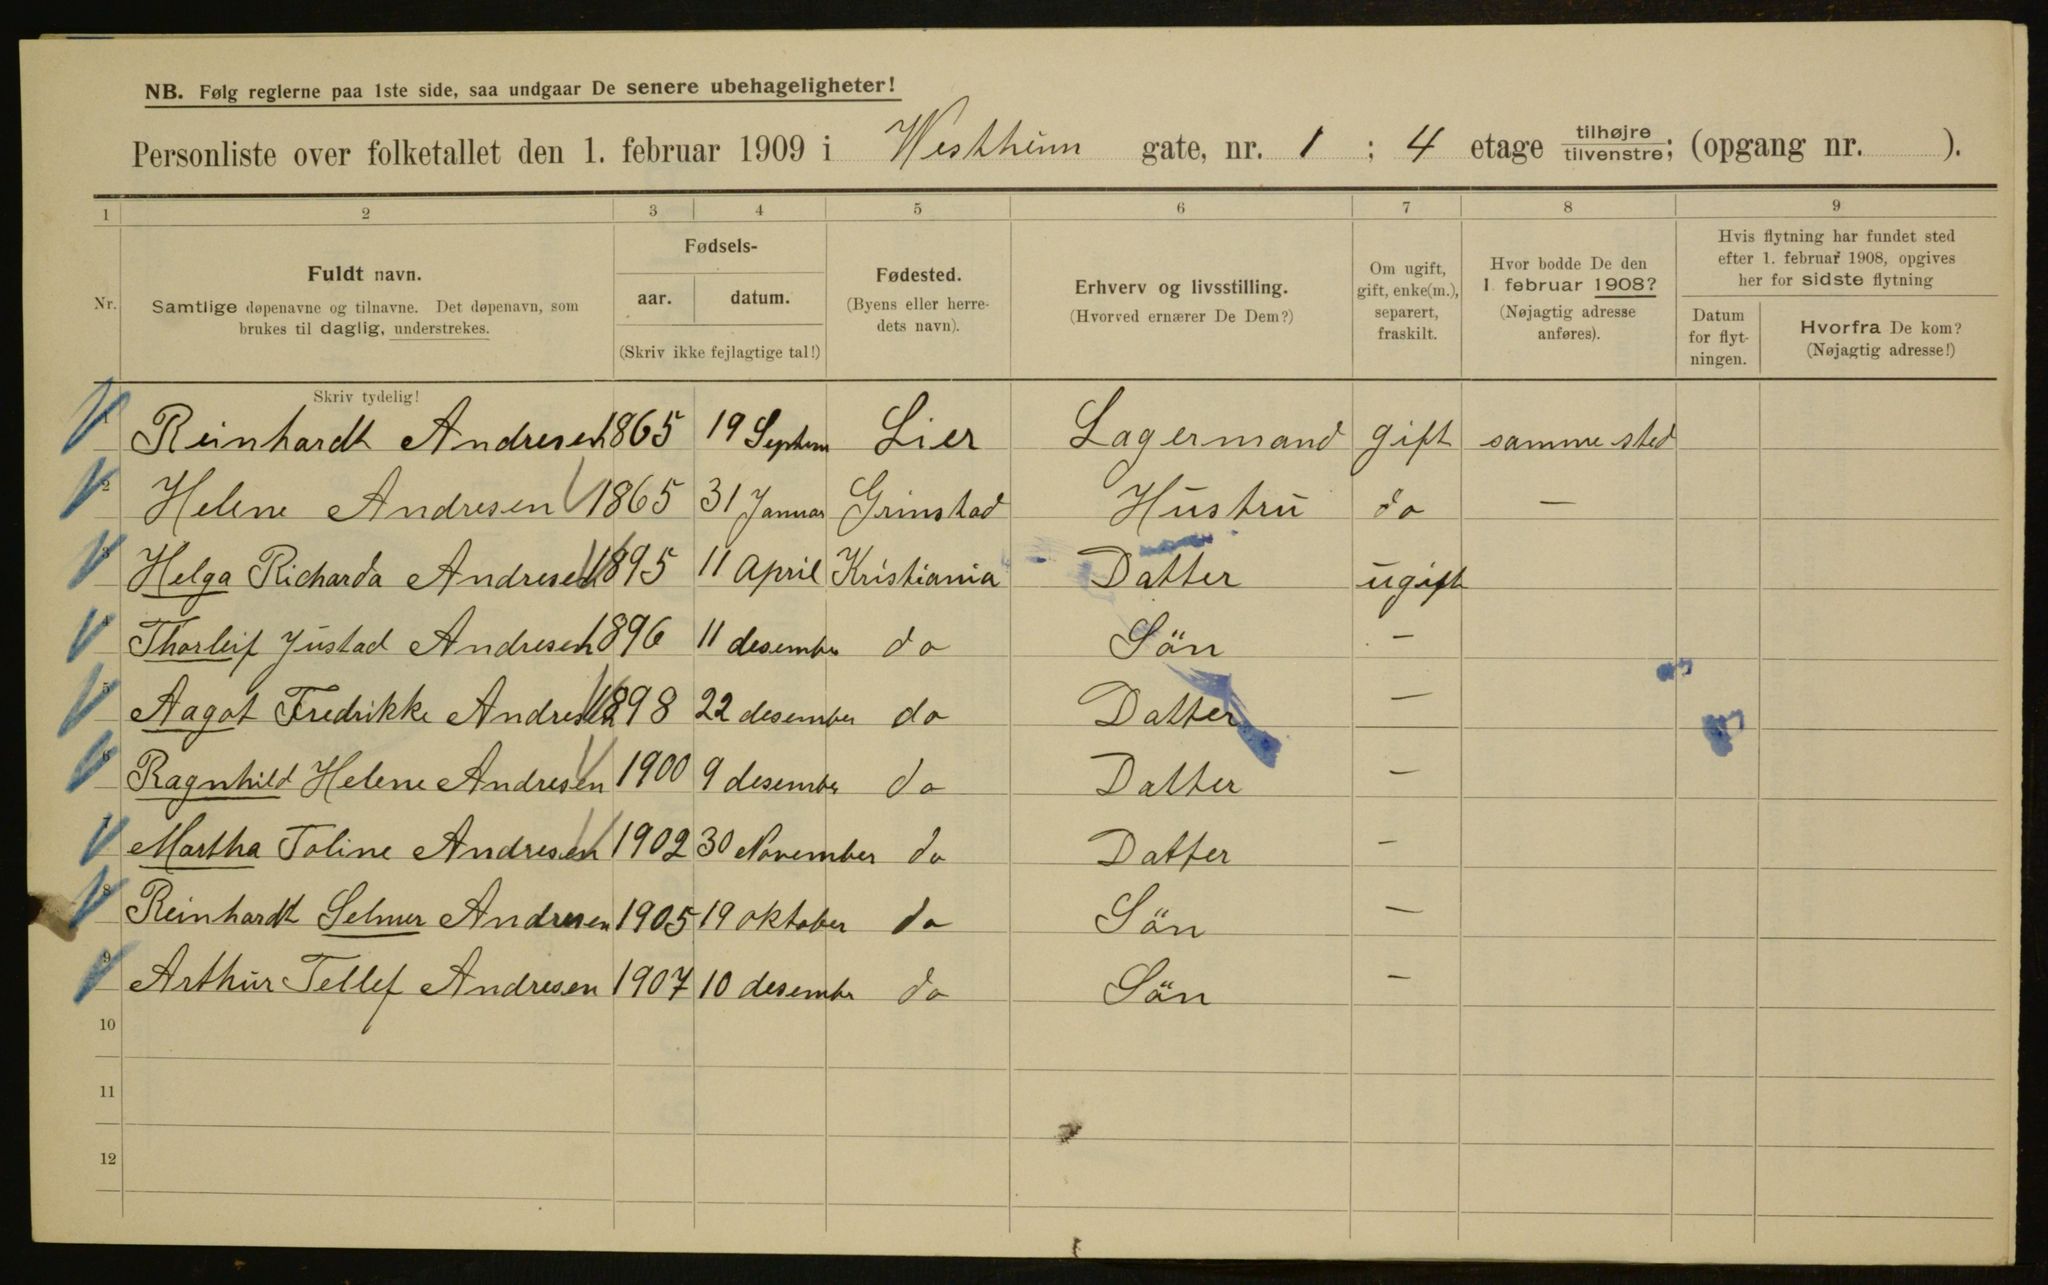 NB. Følg reglerne paa 1ste side, saa undgaar De senere ubehageligheter!
Personliste over folketallet den 1. februar 1909 i Westheim gate, nr. 1 ; 4 etage tilhøjre tilvenstre; (opgang nr. ).
1 2 3 4 5 6 7 8 9
Nr. Fuldt navn. Samtlige døpenavne og tilnavne. Det døpenavn, som brukes til daglig, understrekes.
Fødsels- aar. datum. (Skriv ikke fejlagtige tal!)
Fødested. (Byens eller herredets navn).
Erhverv og livsstilling. (Hvorved ernærer De Dem?)
Om ugift, gift, enke(m.), separert, fraskilt.
Hvor bodde De den 1 februar 1908? (Nøjagtig adresse anføres).
Hvis flytning har fundet sted efter 1. februar 1908, opgives her for sidste flytning
Datum for flytningen. Hvorfra De kom? (Nøjagtig adresse!)
Skriv tydelig!
Reinhardt Andresen 1865 19 Septem Lier Lagermand gift samme sted
2 Helene Andresen 1865 31 Januar Grimstad Hustru do —
3 Helga Richarda Andresen 1895 11 April Kristiania Datter ugift
Thorleif Justad Andresen 1896 11 desember do Sön —
5 Aagot Fredrikke Andresen 1898 22 desember do Datter —
6 Ragnhild Helene Andresen 1900 9 desember do Datter —
7 Martha Toline Andresen 1902 30 November do Datter —
8 Reinhardt Selmer Andresen 1905 19 oktober do Sön —
9 Arthur Tellef Andresen 1907 10 desembr do Sön —
10
11
12